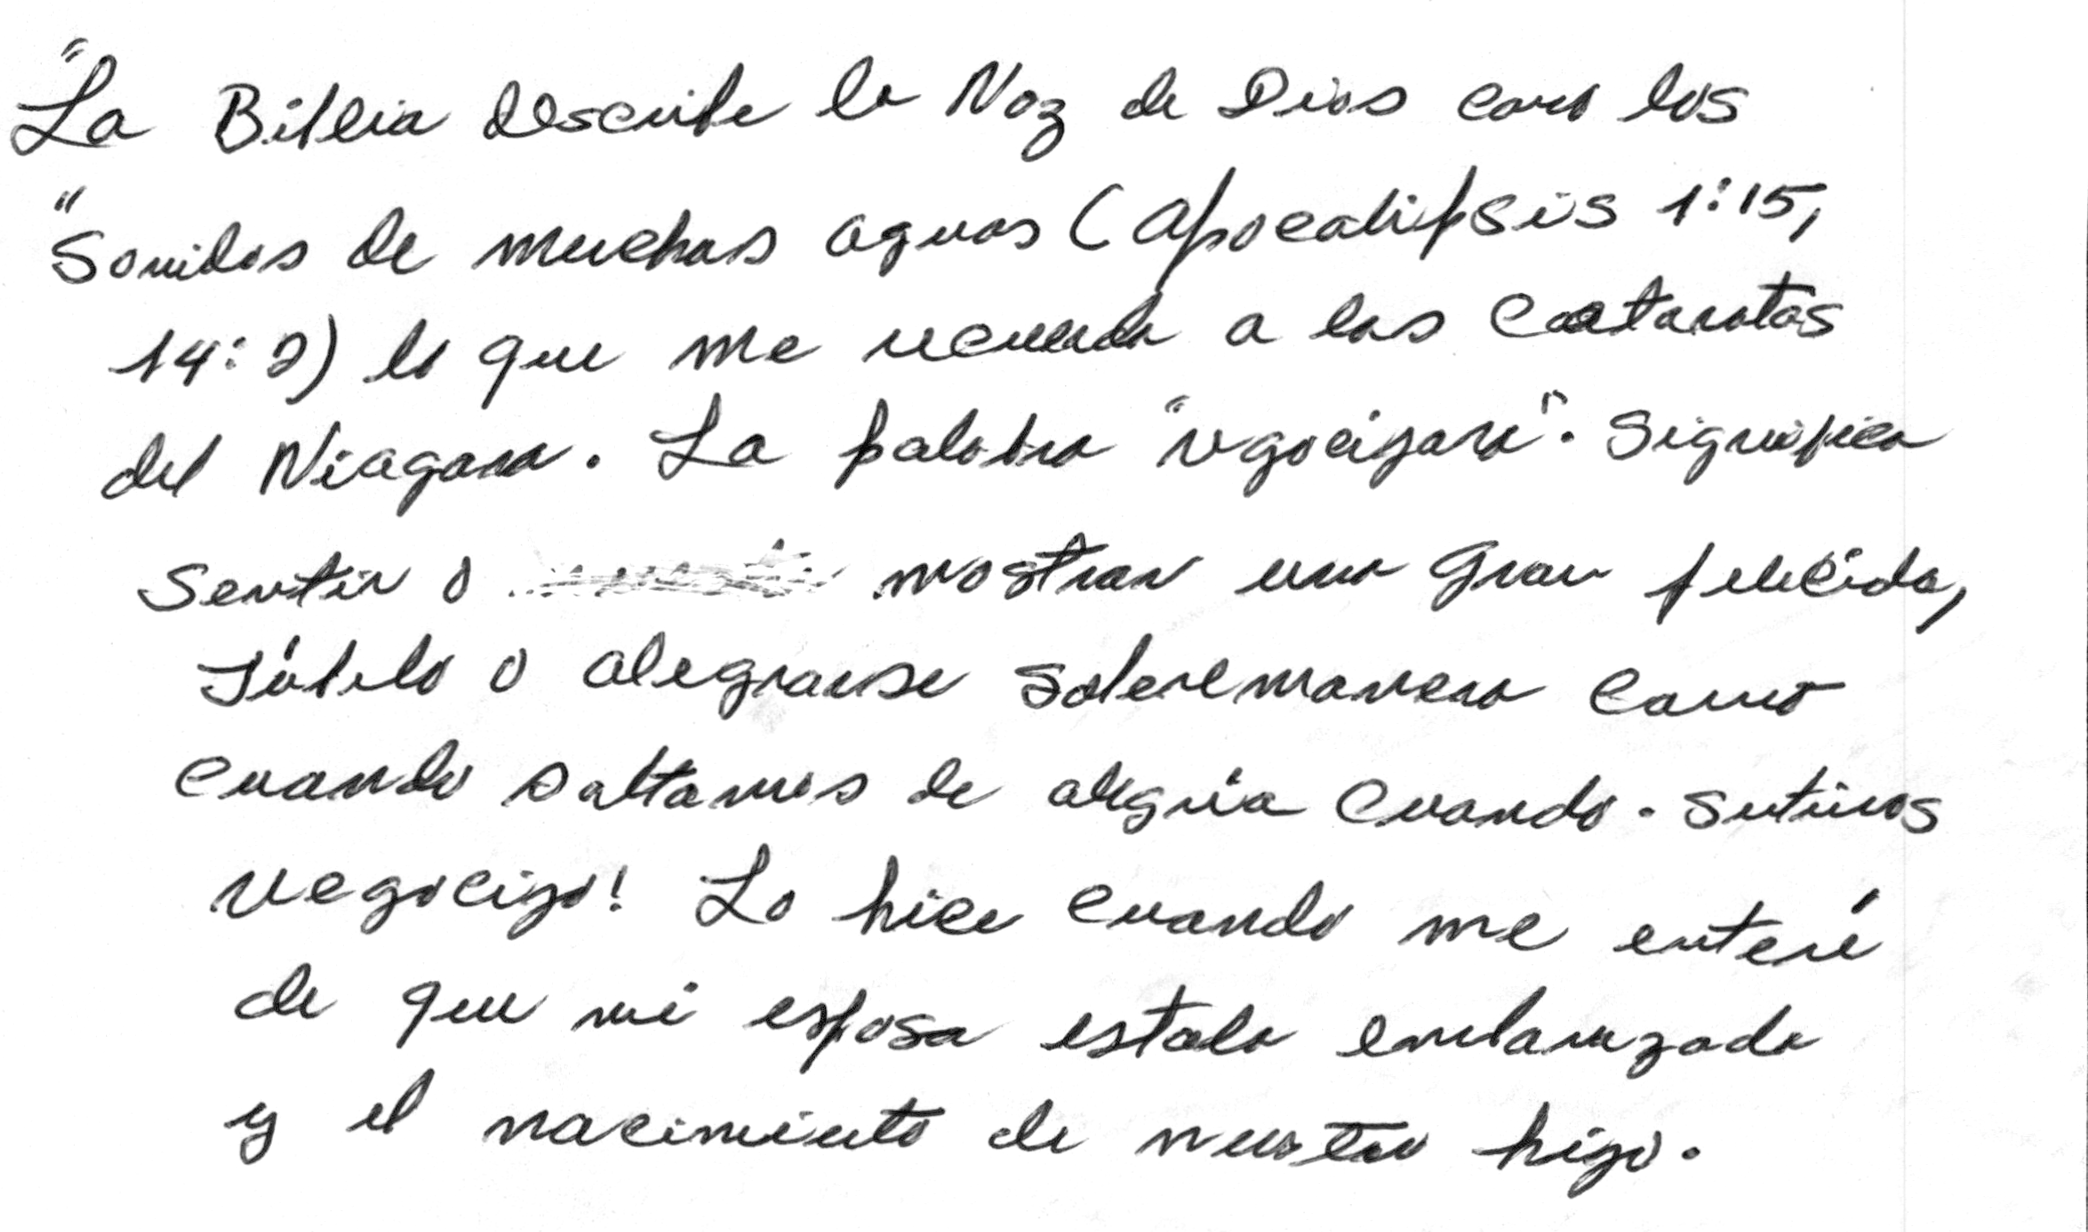 "La Biblia describe la Voz de Dios como los
"Sonidos de muchas aguas (Apocalipsis 1:15,
14:2) lo que me recuerda a las Cataratas
del Niagara. La palabra "regocijara". Significa
Sentir o mostrar una gran felicida,
Júbilo o alegrarse sobremanera como
cuando saltamos de alegría cuando. sentimos
regocijo! Lo hice cuando me enteré
de que mi esposa estaba embarazada
y el nacimiento de nuestro hijo.